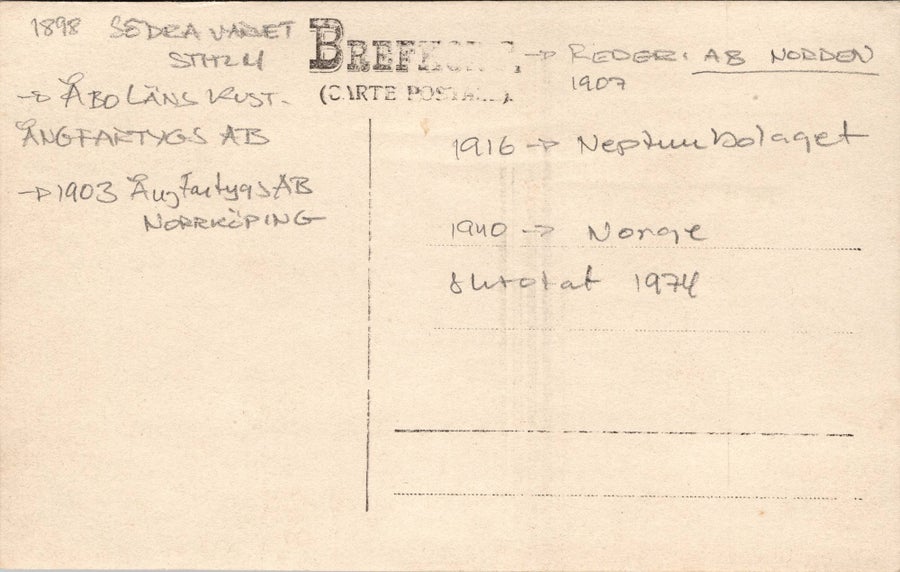 1898 SÖDRA VARVET
STHLM
→ ÅBO LÄNS KUST-
ÅNGFARTYGS AB
→ 1903 ÅngfartygsAB
NORRKÖPING
BREFKORT
(CARTE POSTALE)
→ REDERI AB NORDEN
1907
1916 → Neptunbolaget
1940 → Norge
skrotat 1974